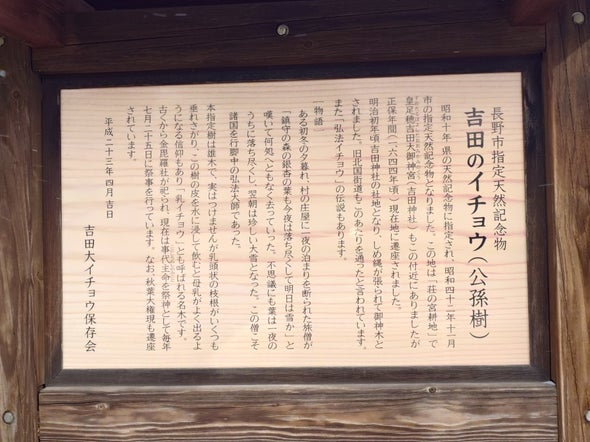 長野市指定天然記念物
吉田のイチョウ(公孫樹)
昭和十年県の天然記念物に指定され、昭和四十二年十一月
市の指定天然記念物となりました。この地は「荘の宮耕地」で
皇足穂吉田大御神宮(吉田神社)もこの付近にありましたが
正保年間(一六四四年頃)現在地に遷座されました。
明治初年頃吉田神社の社地となり、しめ縄が張られて御神木と
されました。旧北国街道もこのあたりを通ったと言われています。
また「弘法イチョウ」の伝説もあります。
物語
ある初冬の夕暮れ、村の庄屋に一夜の泊まりを断られた旅僧が
「鎮守の森の銀杏の葉も今夜は落ち尽くして明日は雪か」と
嘆いて何処へともなく去っていった。不思議にも葉は一夜の
うちに落ち尽くし、翌朝は珍しい大雪となった。この僧こそ
諸国を行脚中の弘法大師であった。
本指定樹は雄木で、実はつけませんが乳頭状の枝根がいくつも
垂れさがり、この樹の皮を水に浸して飲むと母乳がよく出るよ
うになる信仰もあり「乳イチョウ」とも呼ばれる名木です。
古くから金毘羅社が祀られ、現在は事代主命を祭神として毎年
七月二十五日に祭事を行っています。なお、秋葉大権現も遷座
されています。
平成二十三年四月吉日
吉田大イチョウ保存会